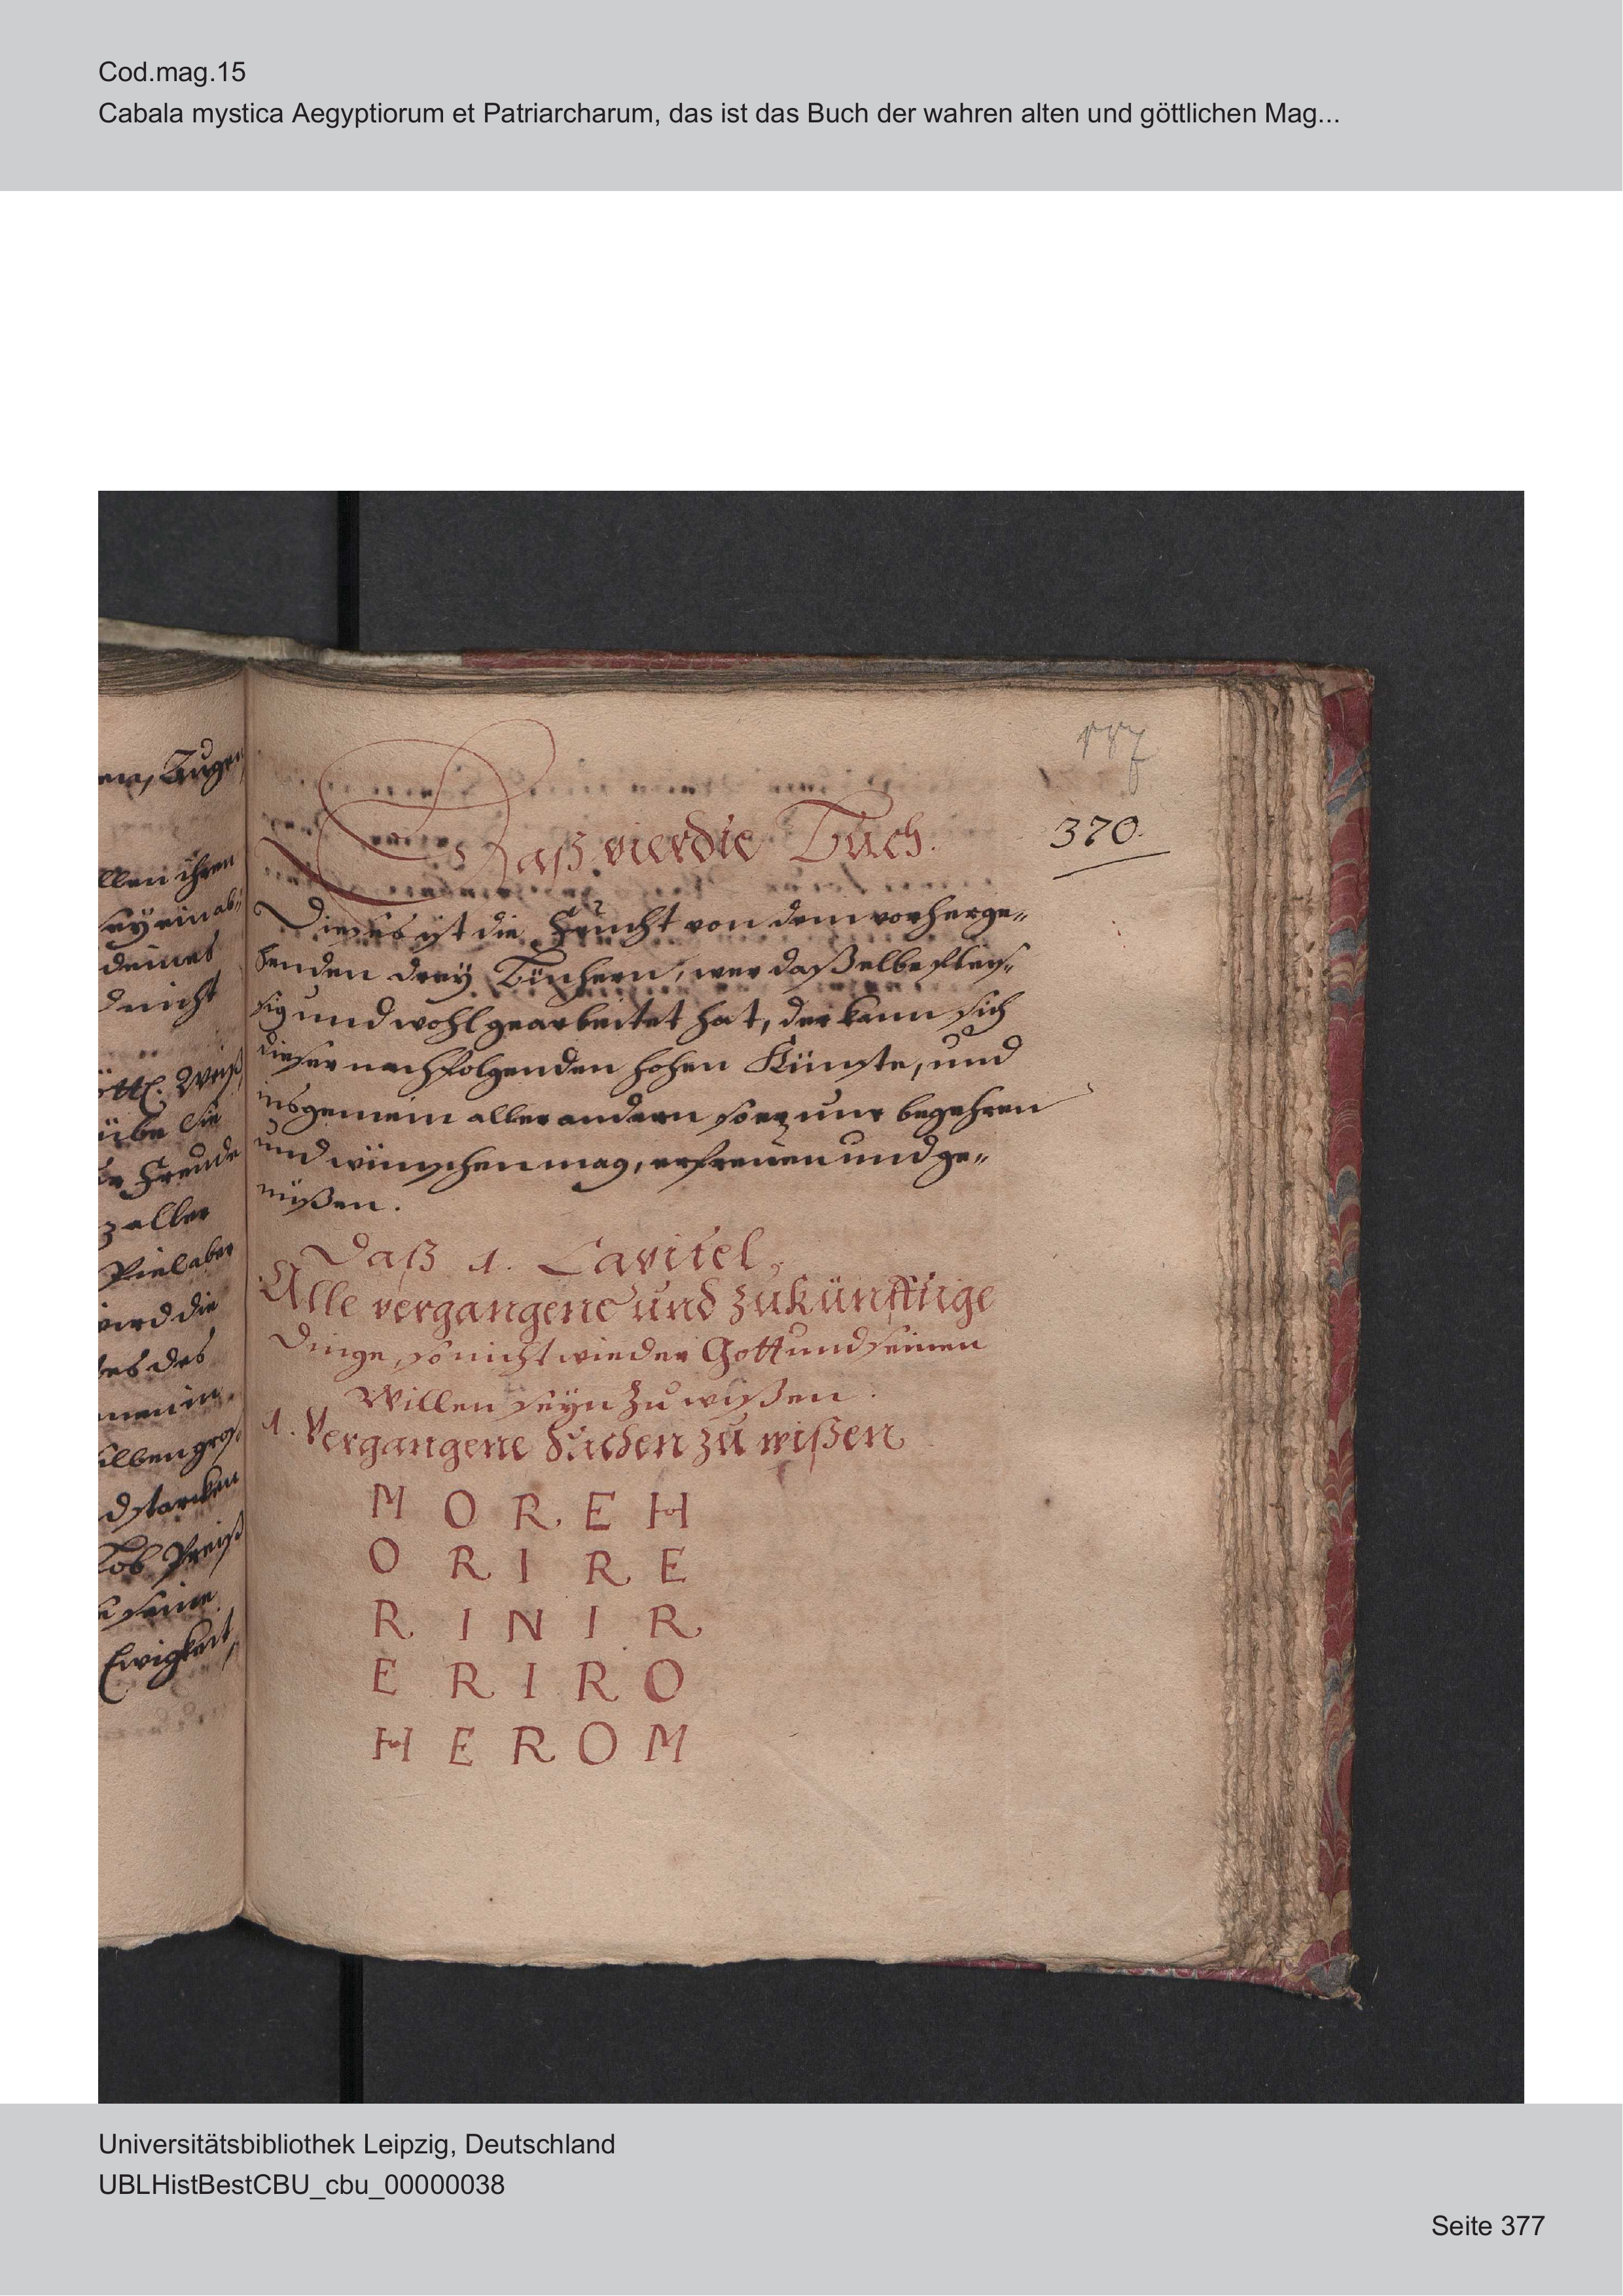 Cod.mag.15
Cabala mystica Aegyptiorum et Patriarcharum, das ist das Buch der wahren alten und göttlichen Mag...
370.
Daß vierdte Buch.
Dieses ist die Frucht von dem vorherge-
henden drey Büchern, wer daßelbe fleis-
sig und wohl gearbeitet hat, der kann sich
dieser nachfolgenden hohen Künste, und
insgemein aller andern so er nur begehren
und wünschen mag, erfreuen und ge-
nüßen.
Daß 1. Capitel.
Alle vergangene und zukünfftige
Dinge, so nicht wieder Gott und seinen
Willen seyn zu wißen.
1. Vergangene Sachen zu wißen
M O R E H
O R I R E
R I N I R
E R I R O
H E R O M
llen ihren
sey ein ab-
deines
d nicht
göttl. Weiß
übe Sie
de Freude
z aller
Viel aber
wird die
tes des
d starcken
Lob Preiß
seine
Ewigkeit,
Universitätsbibliothek Leipzig, Deutschland
UBLHistBestCBU_cbu_00000038
Seite 377